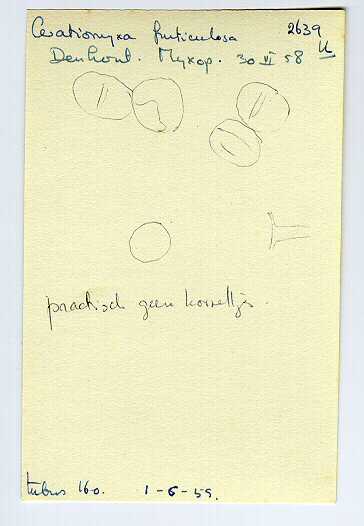 Ceratiomyxa fruticulosa 2639
Denhout. Myxop. 30 VI 58 U
practisch geen korreltjes.
tubus 160. 1-6-59.